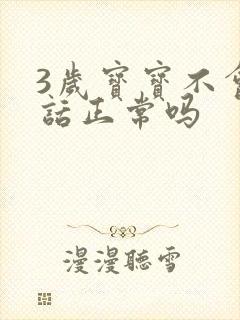 3歲寶寶不會
話正常吗
漫漫聽雪